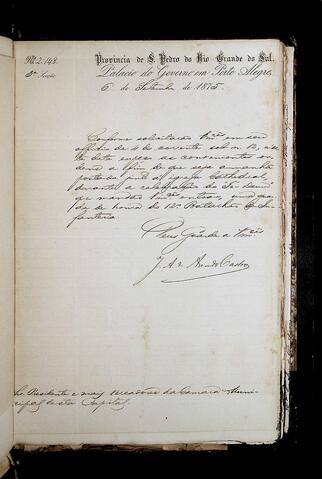 Nº 2.148.
Provincia de S. Pedro do Rio Grande do Sul.
Palacio do Governo em Porto Alegre,
6 de Setembro de 1875.
Conforme solicitarão Vmces em seu
officio de 4 do corrente sob nº 12, n'es
ta data expeço as convenientes or
dens a fim de que seja
postada na igreja Cathedral,
durante a celebração do Te-Deum
que mandão Vmces entoar, uma guar
da de honra do 12º Batalhão de In
fanteria.
Deus Guarde a Vmces
Srs. Presidente e mais vereadores da Camara Muni
cipal desta Capital.